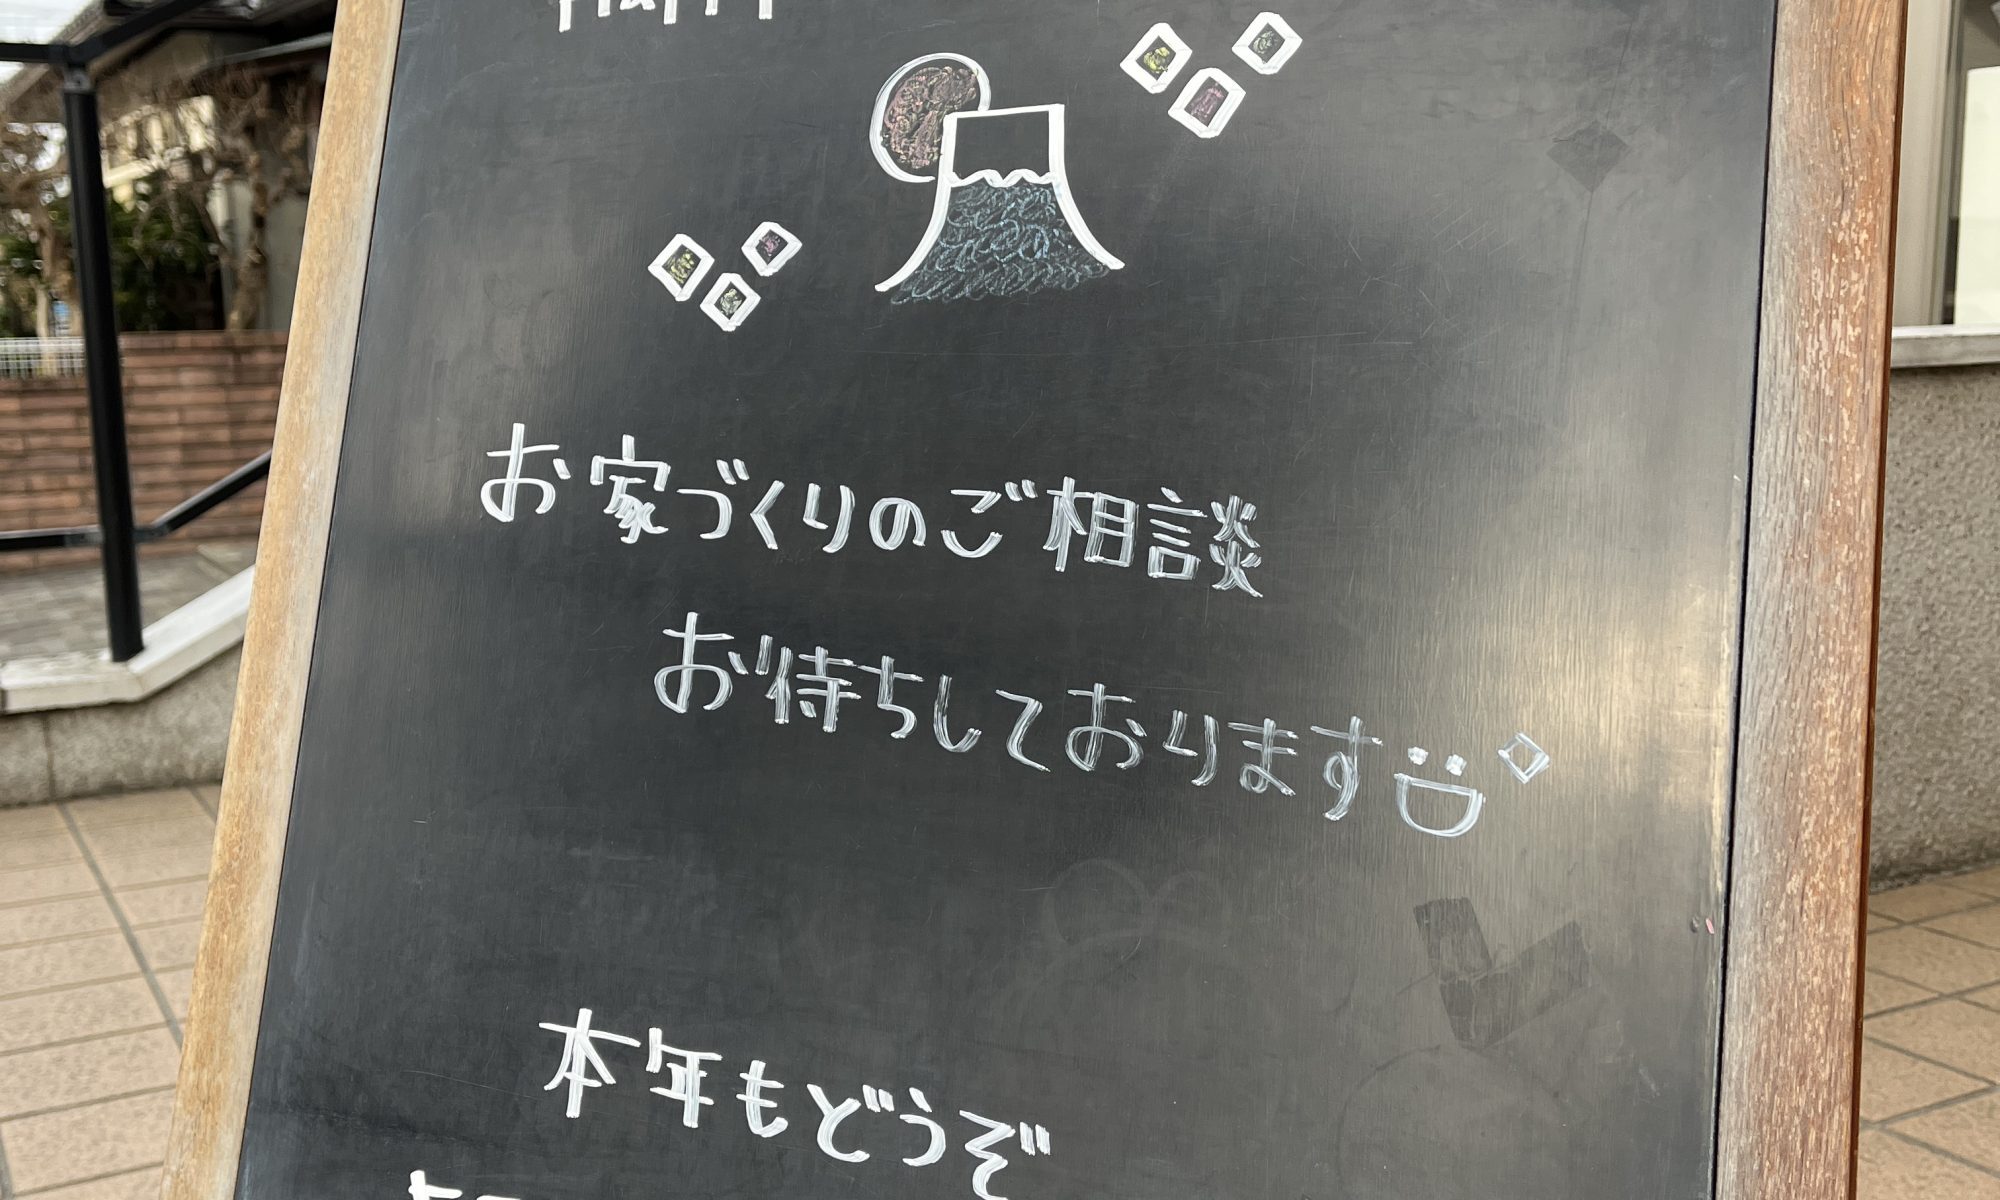 お家づくりのご相談
お待ちしております
本年もどうぞ